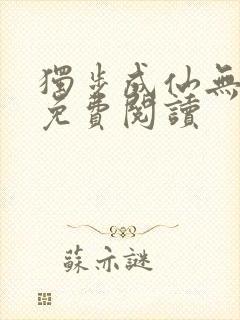 獨步成仙無
免費閱讀
蘇亦謎